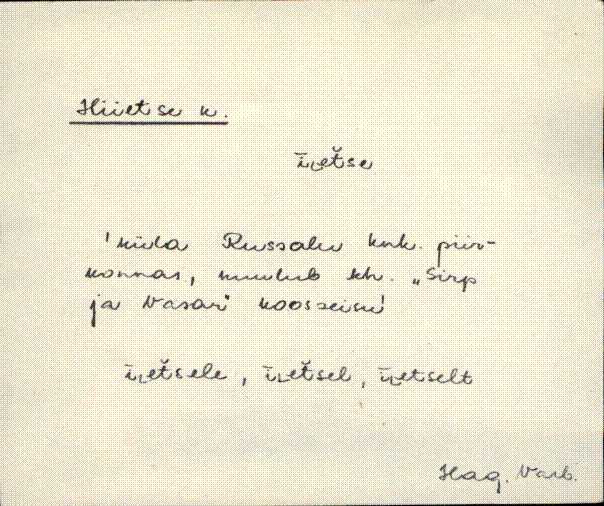 Hiietse k.
īᴗet̆se
'küla Russalu knk. piir-
konnas, kuulub kh. „Sirp
ja Vasar" koosseisu'
īᴗet̆sele, īᴗet̆sel, īᴗetselt
Hag. Varb.